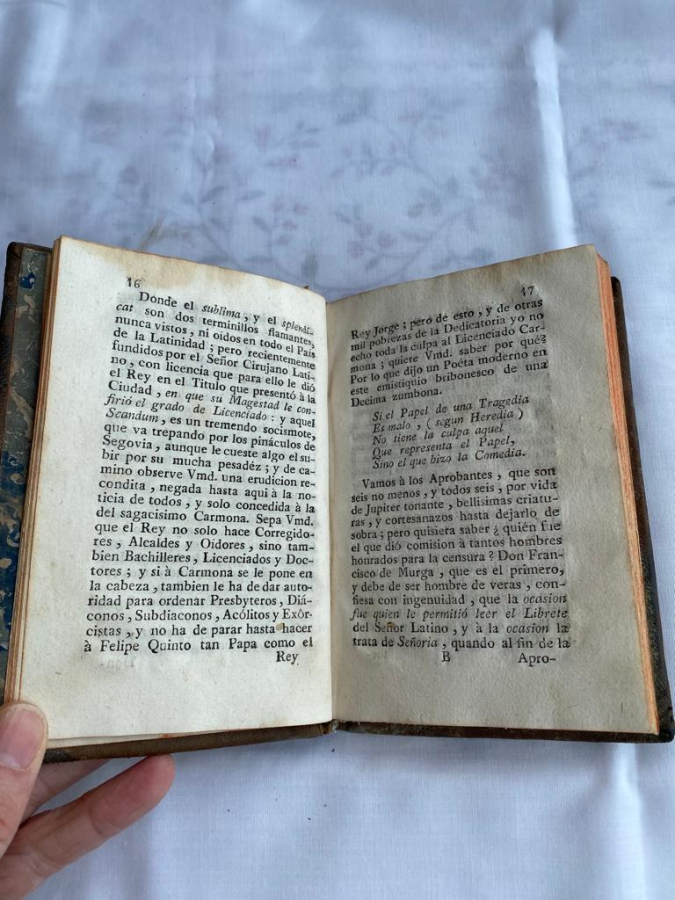 16
Donde el sublima, y el splendi-
cat son dos terminillos flamantes,
nunca vistos, ni oidos en todo el País
de la Latinidad; pero recientemente
fundidos por el Señor Cirujano Lati-
no, con licencia que para ello le dió
el Rey en el Titulo que presentó à la
Ciudad, en que su Magestad le con-
firió el grado de Licenciado: y aquel
Scandum, es un tremendo socismote,
que va trepando por los pináculos de
Segovia, aunque le cueste algo el su-
bir por su mucha pesadéz; y de ca-
mino observe Vmd. una erudicion re-
condita, negada hasta aquì à la no-
ticia de todos, y solo concedida à la
del sagacisimo Carmona. Sepa Vmd.
que el Rey no solo hace Corregido-
res, Alcaldes y Oidores, sino tam-
bien Bachilleres, Licenciados y Doc-
tores; y si à Carmona se le pone en
la cabeza, tambien le ha de dar auto-
ridad para ordenar Presbyteros, Diá-
conos, Subdiaconos, Acólitos y Exôr-
cistas, y no ha de parar hasta hacer
à Felipe Quinto tan Papa como el
Rey
17
Rey Jorge; pero de esto, y de otras
mil pobrezas de la Dedicatoria yo no
echo toda la culpa al Licenciado Car-
mona; quiere Vmd. saber por qué?
Por lo que dijo un Poéta moderno en
este emistiquio bribonesco de una
Decima zumbona.
Si el Papel de una Tragedia
Es malo, (segun Heredia)
No tiene la culpa aquel
Que representa el Papel,
Sino el que hizo la Comedia.
Vamos à los Aprobantes, que son
seis no menos, y todos seis, por vida
de Jupiter tonante, bellisimas criatu-
ras, y cortesanazos hasta dejarlo de
sobra; pero quisiera saber ¿quién fue
el que dió comision à tantos hombres
honrados para la censura? Don Fran-
cisco de Murga, que es el primero,
y debe de ser hombre de veras, con-
fiesa con ingenuidad, que la ocasion
fue quien le permitió leer el Librete
del Señor Latino, y à la ocasion la
trata de Señoria, quando al fin de la
B Apro-